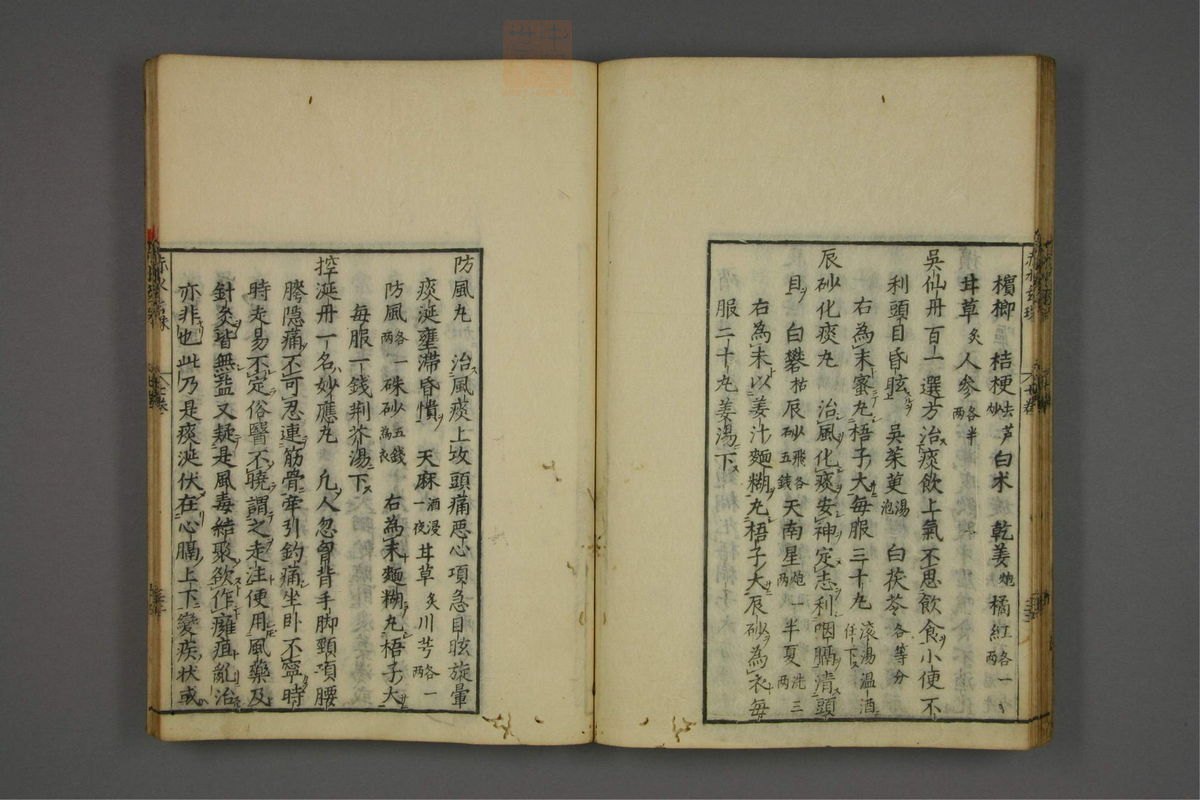 檳榔 桔梗去芦炒 白术 乾姜炮 橘紅各一两
甘草炙 人参各半两
吳仙丹百一選方治痰飲上氣不思飲食小便不
利頭目昏眩 吳茱萸湯泡 白茯苓各等分
右為末蜜丸梧子大每服三十丸滾湯温酒任下
辰砂化痰丸 治風化痰安神定志利咽膈清頭
目 白礬枯 辰砂飛各五錢 天南星炮一两 半夏洗三两
右為末以姜汁麵糊丸梧子大辰砂為衣每
服二十丸姜湯下
防風丸 治風痰上攻頭痛悪心項急目眩旋暈
痰涎壅滞昏憒 天麻酒浸一夜 甘草炙 川芎各一两
防風各一两 硃砂五錢為衣 右為末麵糊丸梧子大
每服一錢荆芥湯下
控涎丹一名妙應丸 凢人忽胷背手脚頸項腰
胯隱痛不可忍連筋骨牽引釣痛坐卧不寧時
時走易不定俗醫不曉謂之走注便用風藥及
針灸皆無益又疑是風毒結聚欲作癰疽亂治
亦非也此乃是痰涎伏在心膈上下變疾状或